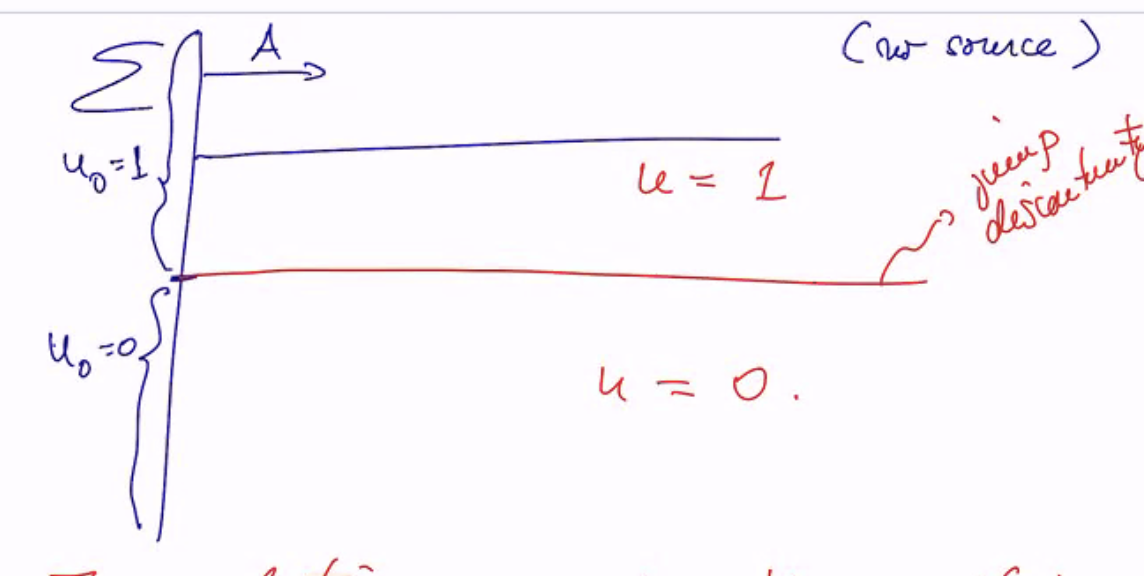 A
(no source)
Σ
u₀=1
u = 1
jump
discontinuity
u₀=0
u = 0.